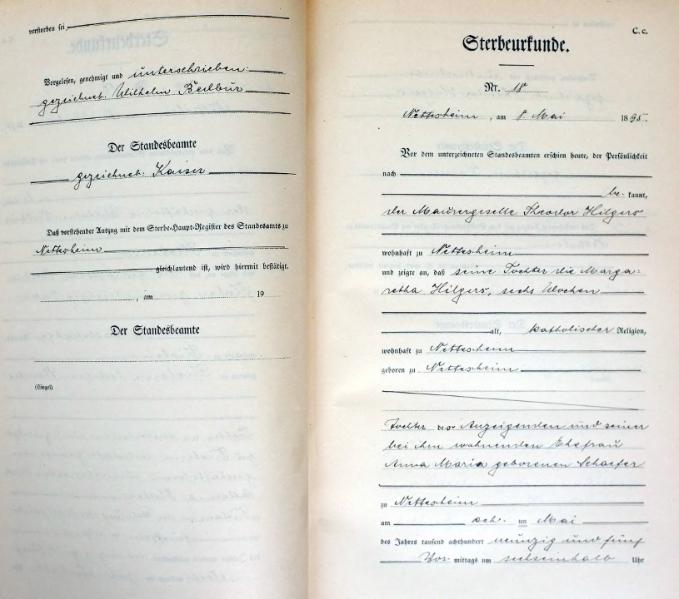 verstorben sei
Vorgelesen, genehmigt und unterschrieben:
gezeichnet. Wilhelm Beilbur
Der Standesbeamte
gezeichnet. Kaiser
Daß vorstehender Auszug mit dem Sterbe-Haupt-Register des Standesamts zu
Nettesheim
gleichlautend ist, wird hiermit bestätigt.
, am 19
Der Standesbeamte
(Siegel)
C. c.
Sterbeurkunde.
Nr. 18
Nettesheim, am 8 Mai 1895.
Vor dem unterzeichneten Standesbeamten erschien heute, der Persönlichkeit
nach
be kannt,
der Maurergeselle Theodor Hilgers
wohnhaft zu Nettesheim
und zeigte an, daß seine Tochter die Marga-
retha Hilgers, sechs Wochen
alt, katholischer Religion,
wohnhaft zu Nettesheim
geboren zu Nettesheim
Tochter des Anzeigenden und seiner
bei ihm wohnenden Ehefrau
Anna Maria geborenen Schaefer
zu Nettesheim
am ach. ten Mai
des Jahres tausend achthundert neunzig und fünf
Vor mittags um sechseinhalb Uhr